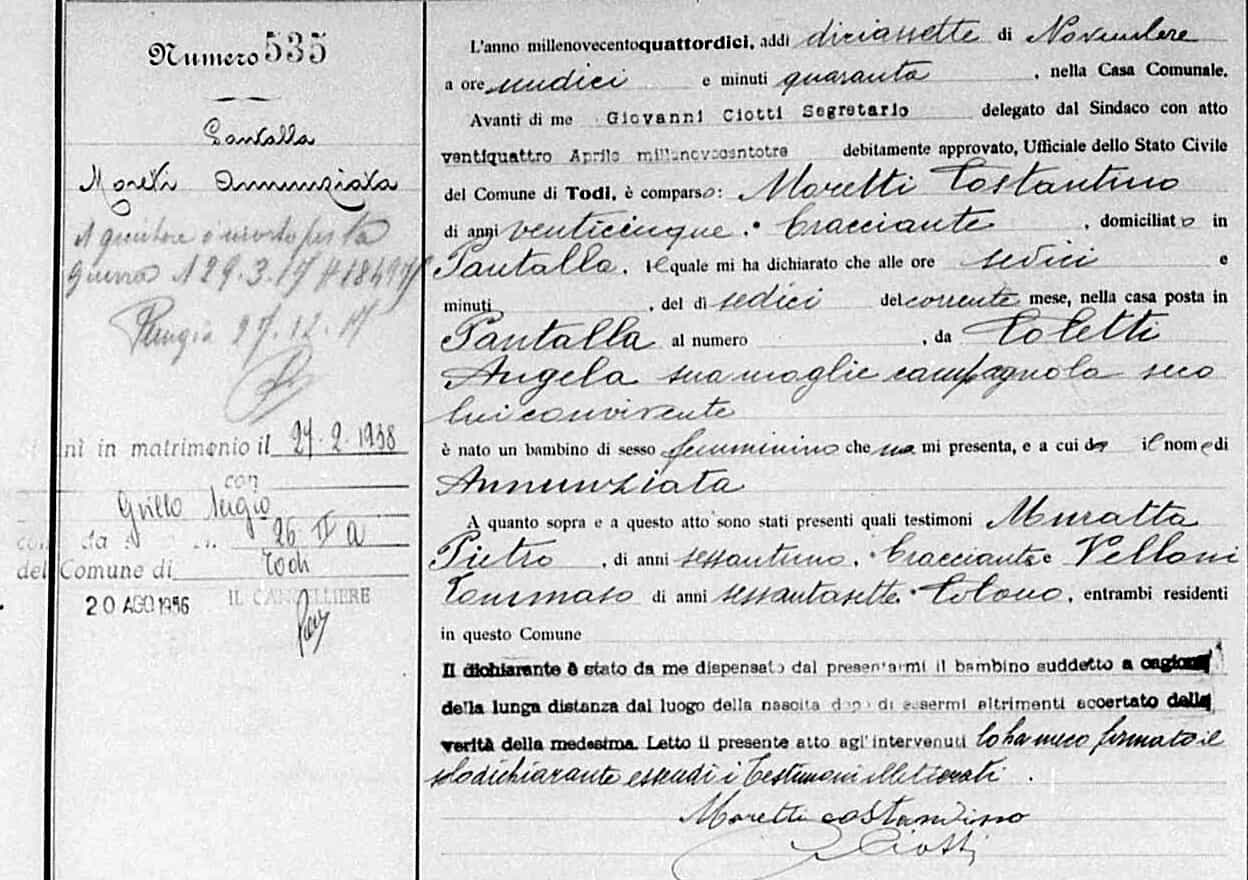 Numero 535
Pantalla
Moretti Annunziata
Il genitore è morto per la
guerra il 29.3.17 # 18497
Perugia 27.12.17
nì in matrimonio il 27-2-1938
con
Grillo Sergio
da 26 II a
del Comune di Todi
20 AGO 1956 IL CANCELLIERE
L'anno millenovecentoquattordici, addì diciassette di Novembre
a ore undici e minuti quaranta, nella Casa Comunale.
Avanti di me Giovanni Ciotti Segretario delegato dal Sindaco con atto
ventiquattro Aprile millenovecentotre debitamente approvato, Ufficiale dello Stato Civile
del Comune di Todi, è comparso: Moretti Costantino
di anni venticinque. bracciante, domiciliato in
Pantalla. Il quale mi ha dichiarato che alle ore sedici e
minuti , del dì sedici del corrente mese, nella casa posta in
Pantalla al numero , da Coletti
Angela sua moglie campagnola seco
lui convivente
è nato un bambino di sesso femminino che no mi presenta, e a cui dà il nome di
Annunziata
A quanto sopra e a questo atto sono stati presenti quali testimoni Muratta
Pietro, di anni sessantuno. bracciante e Velloni
Tommaso di anni sessantasette. Colono, entrambi residenti
in questo Comune
Il dichiarante è stato da me dispensato dal presentarmi il bambino suddetto a cagione
della lunga distanza dal luogo della nascita dopo di essermi altrimenti accertato della
verità della medesima. Letto il presente atto agl'intervenuti lo ha meco firmato il
solo dichiarante essendo i testimoni illetterati.
Moretti costantino
Ciotti